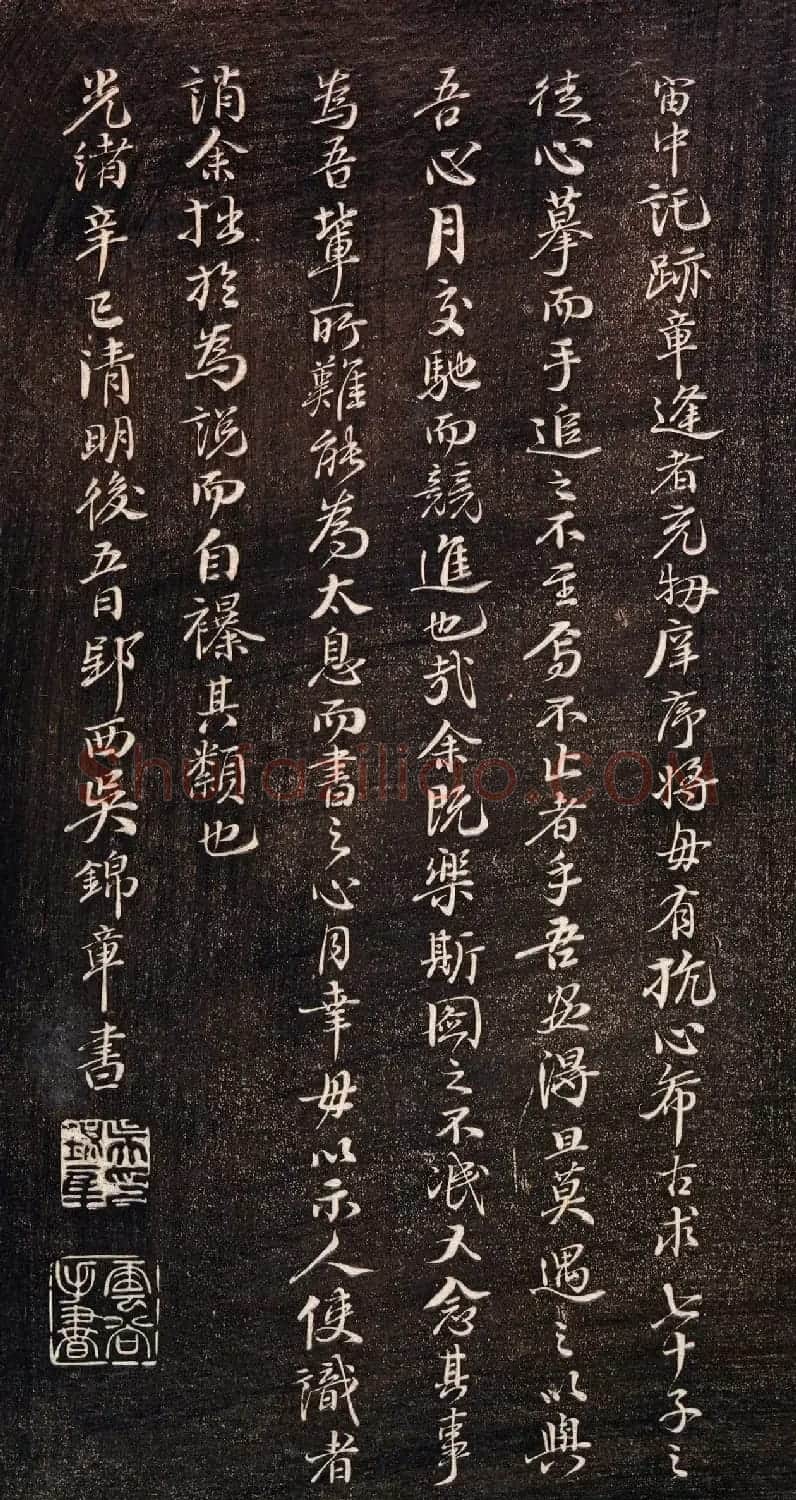 宙中託跡章逢者充牣庠序將毋有抗心希古求七十子之
徒心摹而手追之不至焉不止者乎吾安得旦莫遇之以與
吾心月交馳而競進也哉余既樂斯圖之不泯又念其事
為吾輩所難能為太息而書之心月幸毋以示人使識者
誚余拙於為説而自襮其類也
光緒辛巳清明後五日郢西吳錦章書
雲谷手書
Shufaziliao.COM